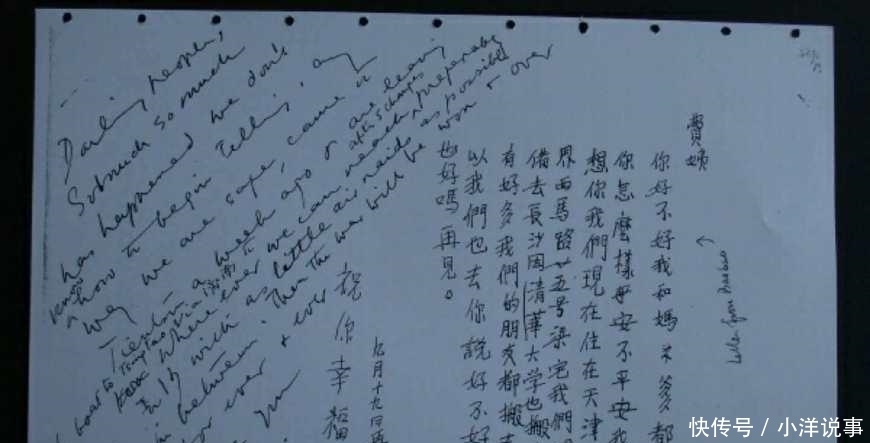 Darling people,
So much so much
has happened we don't
know how to begin telling, any
way we are safe, came
Tientsin a week ago & are leaving
after 5 changes
boat to Tsingtao via 濟南 to
where ever we can reach
with as little air raids as possible
in between. Then the war will be won & over
for ever & ever
費姨
你好不好我和媽爹都
你怎麼樣平安不平安我
想你我們現在住在天津
界西馬路廿五号梁宅我們
去長沙因清華大学也搬
有好多我們的朋友都搬去
以我們也去你說好不好
也好嗎再見。
祝你幸福
九月十九
快传号 / 小洋说事